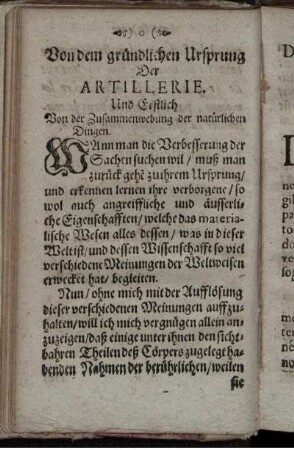 •⊰§( o )§⊱•
Von dem gründlichen Ursprung
Der
ARTILLERIE,
Und Erstlich
Von der Zusammenwebung der natürlichen
Dingen.
WAnn man die Verbesserung der
Sachen suchen wil / muß man
zurück gehẽ zu ihrem Ursprung /
und erkennen lernen ihre verborgene / so
wol auch angreiffliche und äusserli-
che Eigenschafften / welche das materia-
lische Wesen alles dessen / was in dieser
Welt ist / und dessen Wissenschafft so viel
verschiedene Meinungen der Weltweisen
erwecket hat / begleiten.
Nun / ohne mich mit der Aufflösung
dieser verschiedenen Meinungen auffzu-
halten / will ich mich vergnügen allein an-
zuzeigen / daß einige unter ihnen den sicht-
bahren Theilen deß Cörpers zugelegt ha-
benden Nahmen der berührlichen / weilen
sie